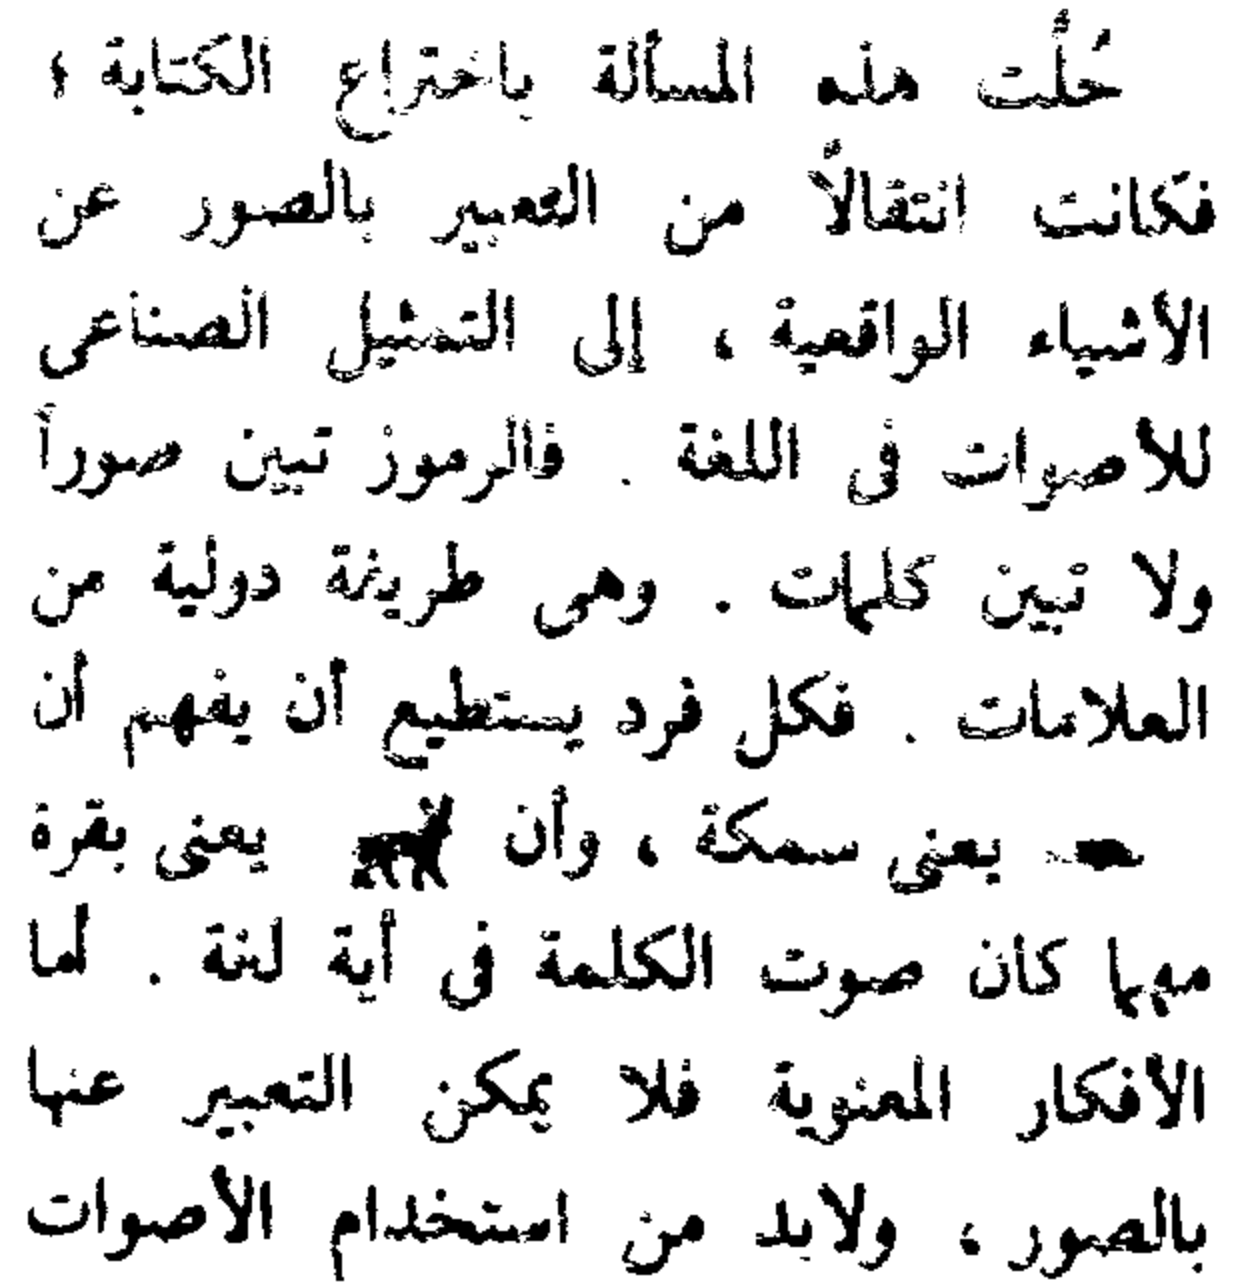 حُلَّت هذه المسألة باختراع الكتابة ؛
فكانت انتقالاً من التعبير بالصور عن
الأشياء الواقعية ، إلى التمثيل الصناعى
للأصوات فى اللغة . فالرموز تبين صوراً
ولا تبين كلمات . وهى طريقة دولية من
العلامات . فكل فرد يستطيع أن يفهم أن
يعنى سمكة ، وأن يعنى بقرة
مهما كان صوت الكلمة فى أية لغة . أما
الأفكار المعنوية فلا يمكن التعبير عنها
بالصور ، ولابد من استخدام الأصوات